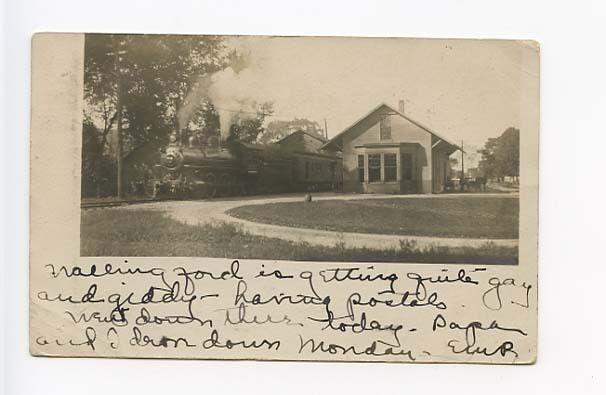 Walling ford is getting quite gay
and giddy - having postals.
Went down there today - Papa
and I drove down Monday - EmR